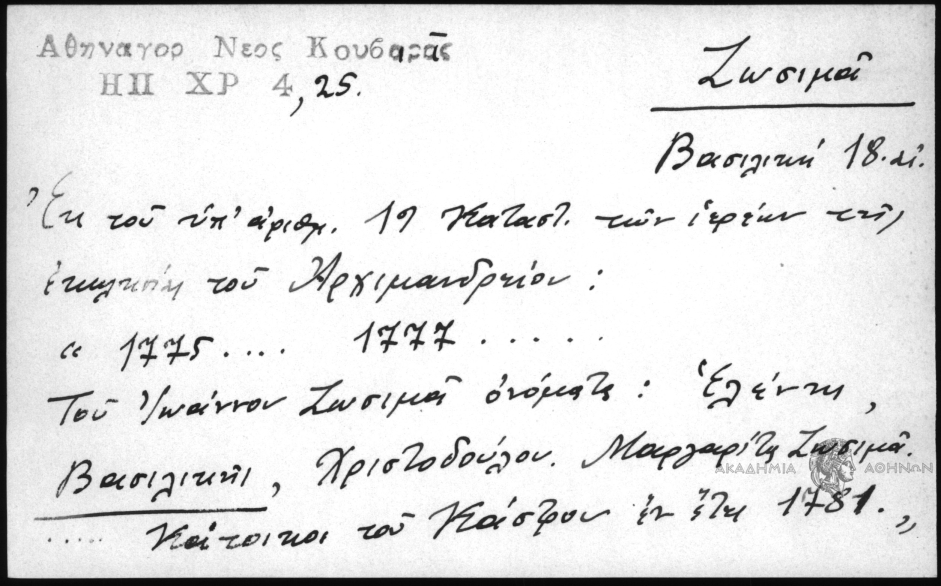 Αθηναγορ Νεος Κουβαρᾶς
ΗΠ ΧΡ 4, 25.
Ζωσιμᾶ
Βασιλική 18. αἰ.
Ἐκ τοῦ ὑπ' ἀριθμ. 19 Κατάστ. τῶν ἱερέων τῆς
ἐκκλησίας τοῦ Ἀρχιμανδρείου :
« 1775.... 1777 ......
Τοῦ Ἰωάννου Ζωσιμᾶ ὀνόματα : Ἑλένης,
Βασιλικῆς, Χριστοδούλου. Μαργαρίτη Ζωσιμᾶ.
..... Κάτοικοι τοῦ Κάστρου ἐν ἔτει 1781. »
ΑΚΑΔΗΜΙΑ ΑΘΗΝΩΝ